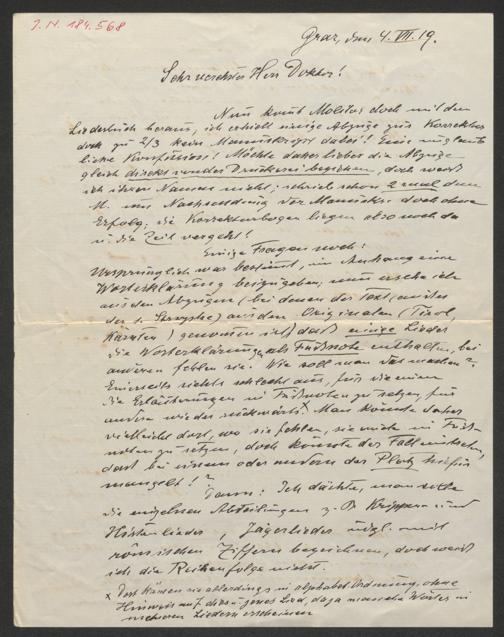 J. N. 184.568
Graz, den 4. VII. 19.
Sehr verehrter Herr Doktor!
Nun kommt Molitor doch mit dem
Liederbuch heraus, ich erhielt einige Abzüge zur Korrektur
doch zu 2/3 kein Manuskript dabei! Eine unglaub
liche Konfusion! Möchte daher lieber die Abzüge
gleich direkt von der Druckerei beziehen, doch weiß
ich ihren Namen nicht; schrieb schon 2 mal dem
M. um Nachsendung der Manuskr. doch ohne
Erfolg; die Korrekturbogen liegen also noch da
u. die Zeit vergeht!
Einige Fragen noch:
Ursprünglich war bestimmt, im Anhang eine
Worterklärung beizugeben; nun ersehe ich
aus den Abzügen (bei denen der Text
der 1. Strophe) aus den Originalen (Tirol,
Kärnten) genommen ist) daß einige Lieder
die Worterklärung als Fußnote enthalten, bei
anderen fehlen sie. Wie soll man das machen?
Einerseits sieht's schlecht aus, für die einen
die Erläuterungen in Fußnoten zu setzen, für
andere wieder rückwärts. x Man könnte daher
vielleicht dort, wo sie fehlen, sie auch in Fuß-
noten zu setzen, doch könnte der Fall eintreten,
daß bei einem oder andern der Platz hiefür
mangelt!?
Dann: Ich dächte, man sollte
die einzelnen Abteilungen z. B. Krippen- und
Hirtenlieder, Jägerlieder mit
römischen Ziffern bezeichnen, doch weiß
ich die Reihenfolge nicht.
x Dort kämen sie allerdings in alphabet. Ordnung, ohne
Hinweis auf dieses u. jenes Lied, da ja manche Wörter in
mehreren Liedern erscheinen